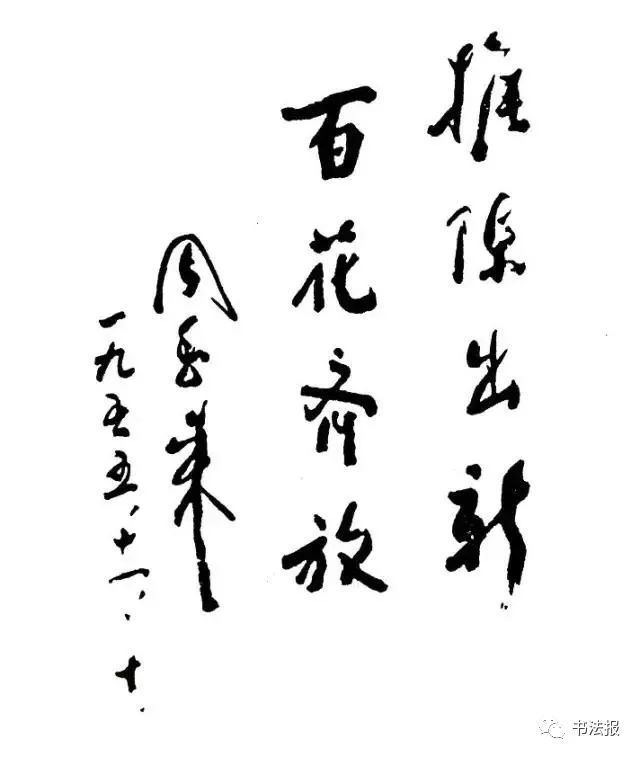 推陈出新
百花齐放
周恩来
一九五五、十一、十.
书法报